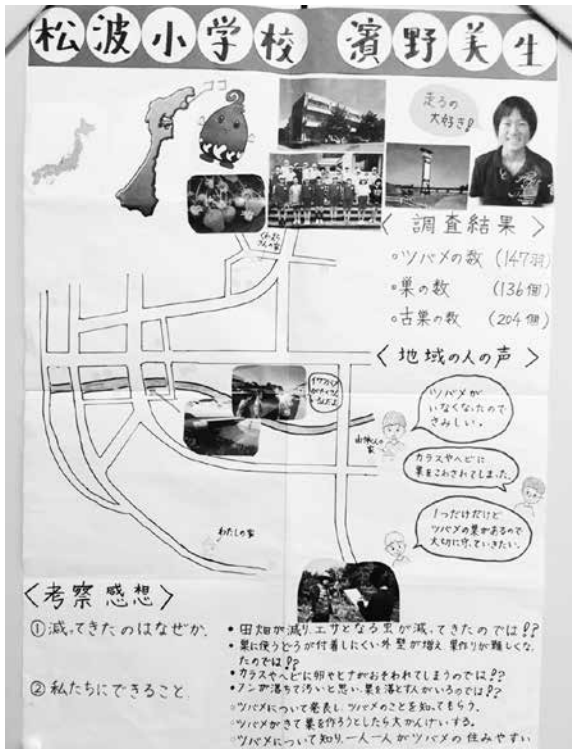 松波小学校 濱野美生
ココ
走るの
大好き!
<調査結果>
○ツバメの数 (147羽)
○巣の数 (136個)
○古巣の数 (204個)
<地域の人の声>
ツバメが
いなくなったので
さみしい。
カラスやヘビに
巣をこわされてしまった。
1つだけだけど
ツバメの巣があるので
大切に守っていきたい。
さんの家
イワツバメ
の家
わたしの家
<考察 感想>
①減ってきたのはなぜか
• 田畑が減り、エサとなる虫が減ってきたのでは!?
• 巣に使うどろが付着しにくい外壁が増え、巣作りが難しくなっ
たのでは!?
• カラスやヘビに卵やヒナがおそわれてしまうのでは!?
• フンが落ちて汚いと思い、巣を落とす人がいるのでは!?
②私たちにできること
○ツバメについて発表し、ツバメのことを知ってもらう。
○ツバメがきて巣を作ろうとしたら大かんげいする。
○ツバメについて知り、一人一人がツバメの住みやすい